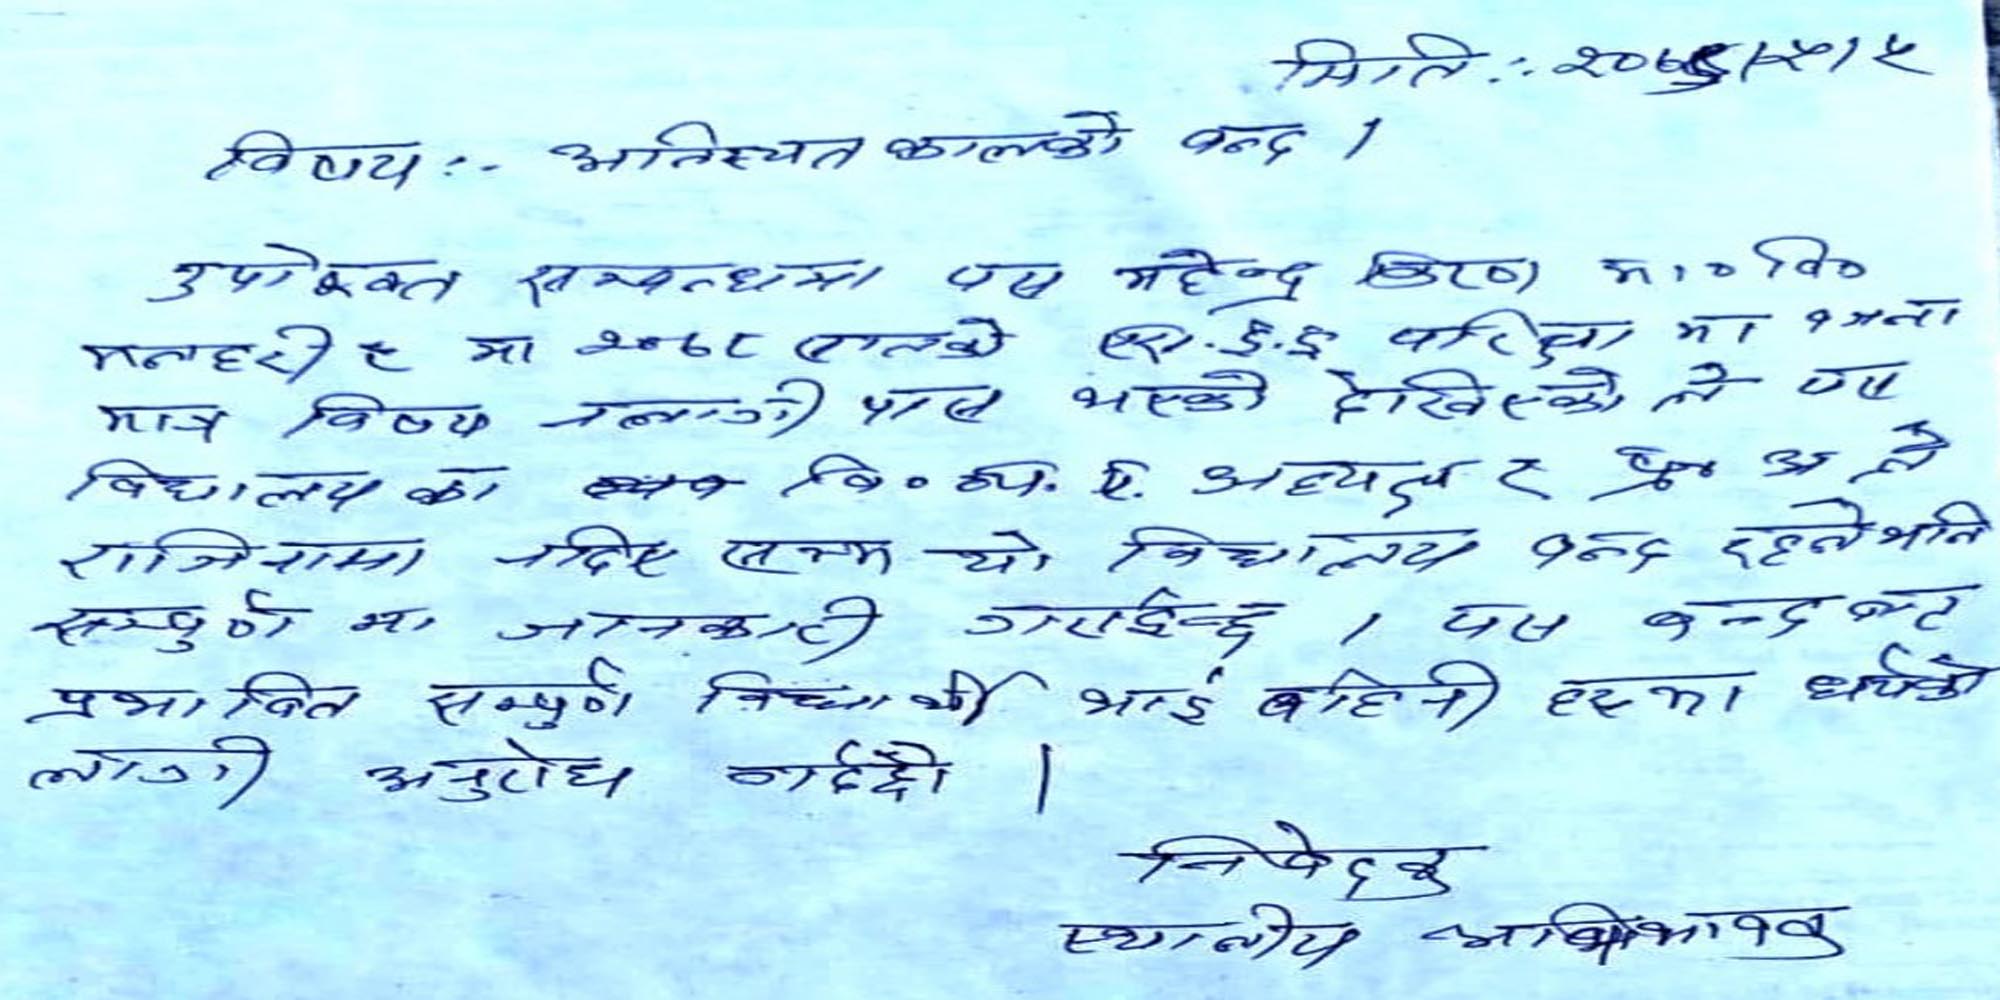 मिति :- २०७९/५/५
विषय :- अनिस्चत कालको बन्द ।
उपरोक्त सम्बन्धमा यस महेन्द्र किरण मा०वि०
मनहरी ९ मा २०७८ सालको एस.ई.ई परिक्षा मा १ जना
मात्र विषय नलागी पास भएको देखिएको ले यस
विद्यालय का वि.व्य.स. अध्यक्ष र प्र० अ ले
राजिनामा नदिए सम्म यो विद्यालय बन्द रहनेभनि
सम्पुर्ण मा जानकारी गराईन्छ । यस बन्दबाट
प्रभावित सम्पुर्ण विद्यार्थी भाई बहिनी हरुमा धर्यको
लागी अनुरोध गर्दछौ ।
निवेदक
स्थानीय अभिभावक